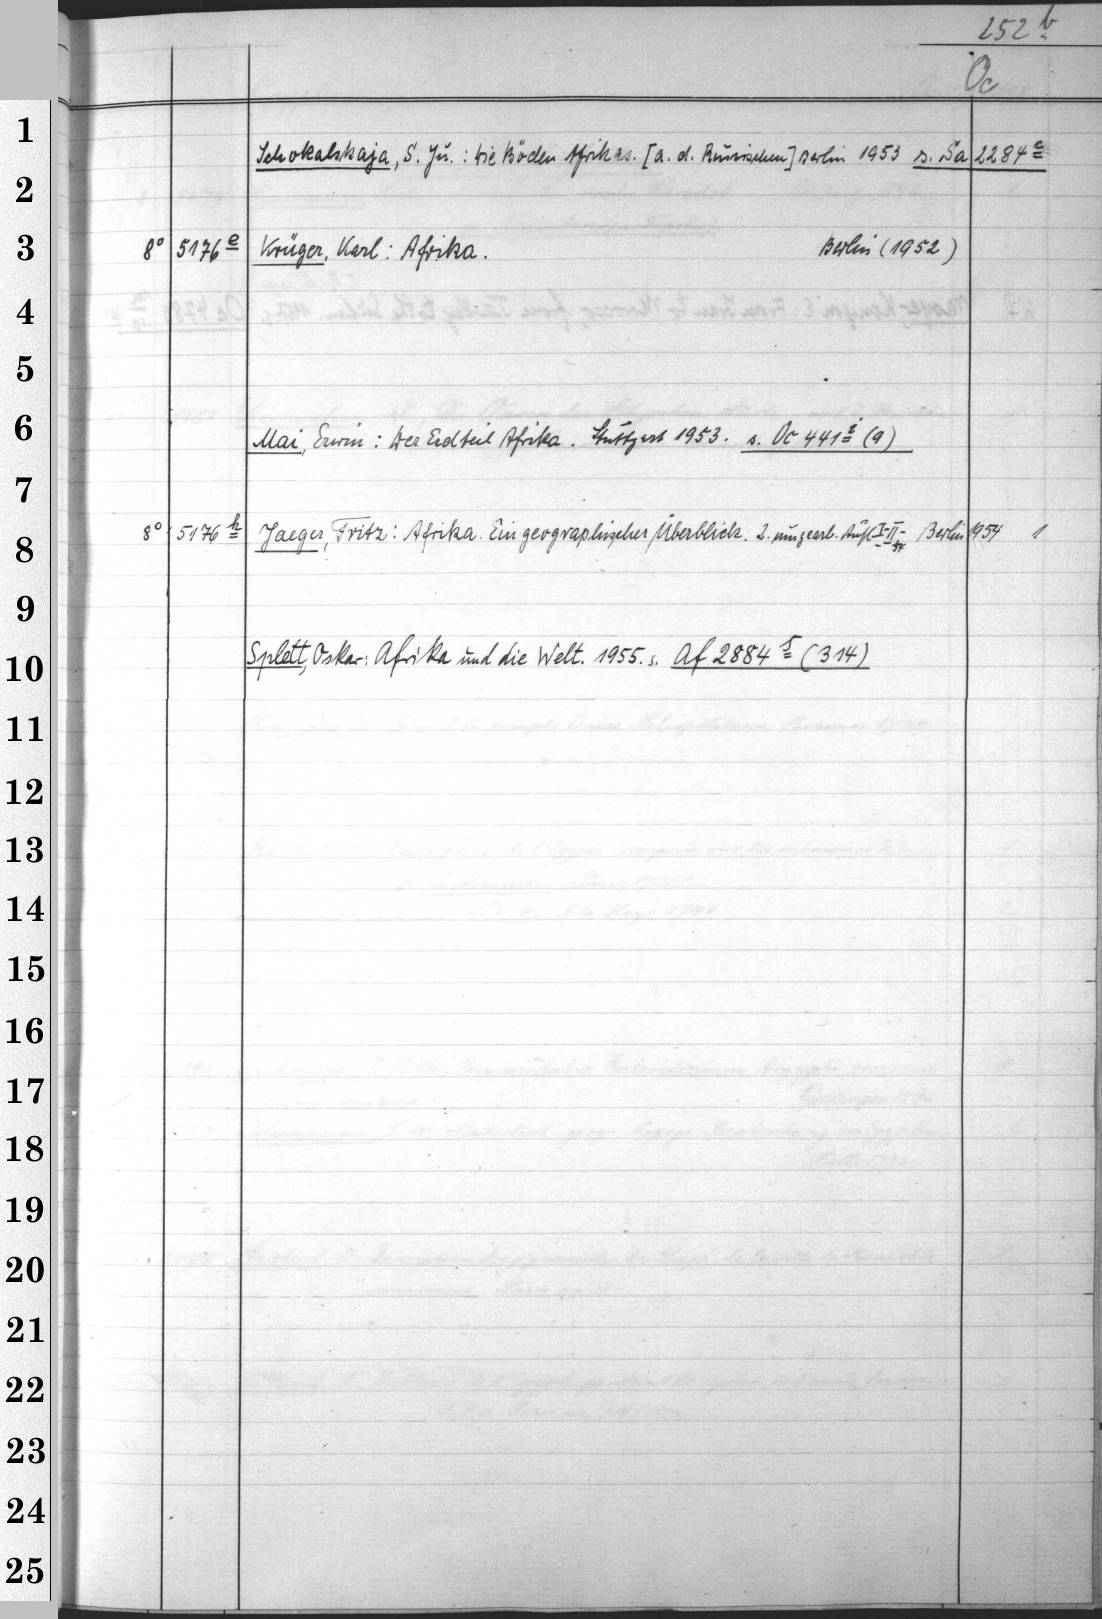 252 b
Oc
1
Schokalskaja, S. Ju. : Die Böden Afrikas. [a. d. Russischen] Berlin 1953 s. Sa 2284 e
2
3 8° 5176 e Krüger, Karl: Afrika. Berlin (1952)
4
5
6 Mai, Erwin: Der Erdteil Afrika. Stuttgart 1953. s. Oc 441 i (9)
7
8° 5176 h Jaeger, Fritz: Afrika. Ein geographischer Überblick. 2. umgearb. Aufl. I-II- 54 Berlin 1954 1
8
9
10 Splett, Oskar: Afrika und die Welt. 1955. s. Af 2884 5 (314)
11
12
13
14
15
16
17
18
19
20
21
22
23
24
25